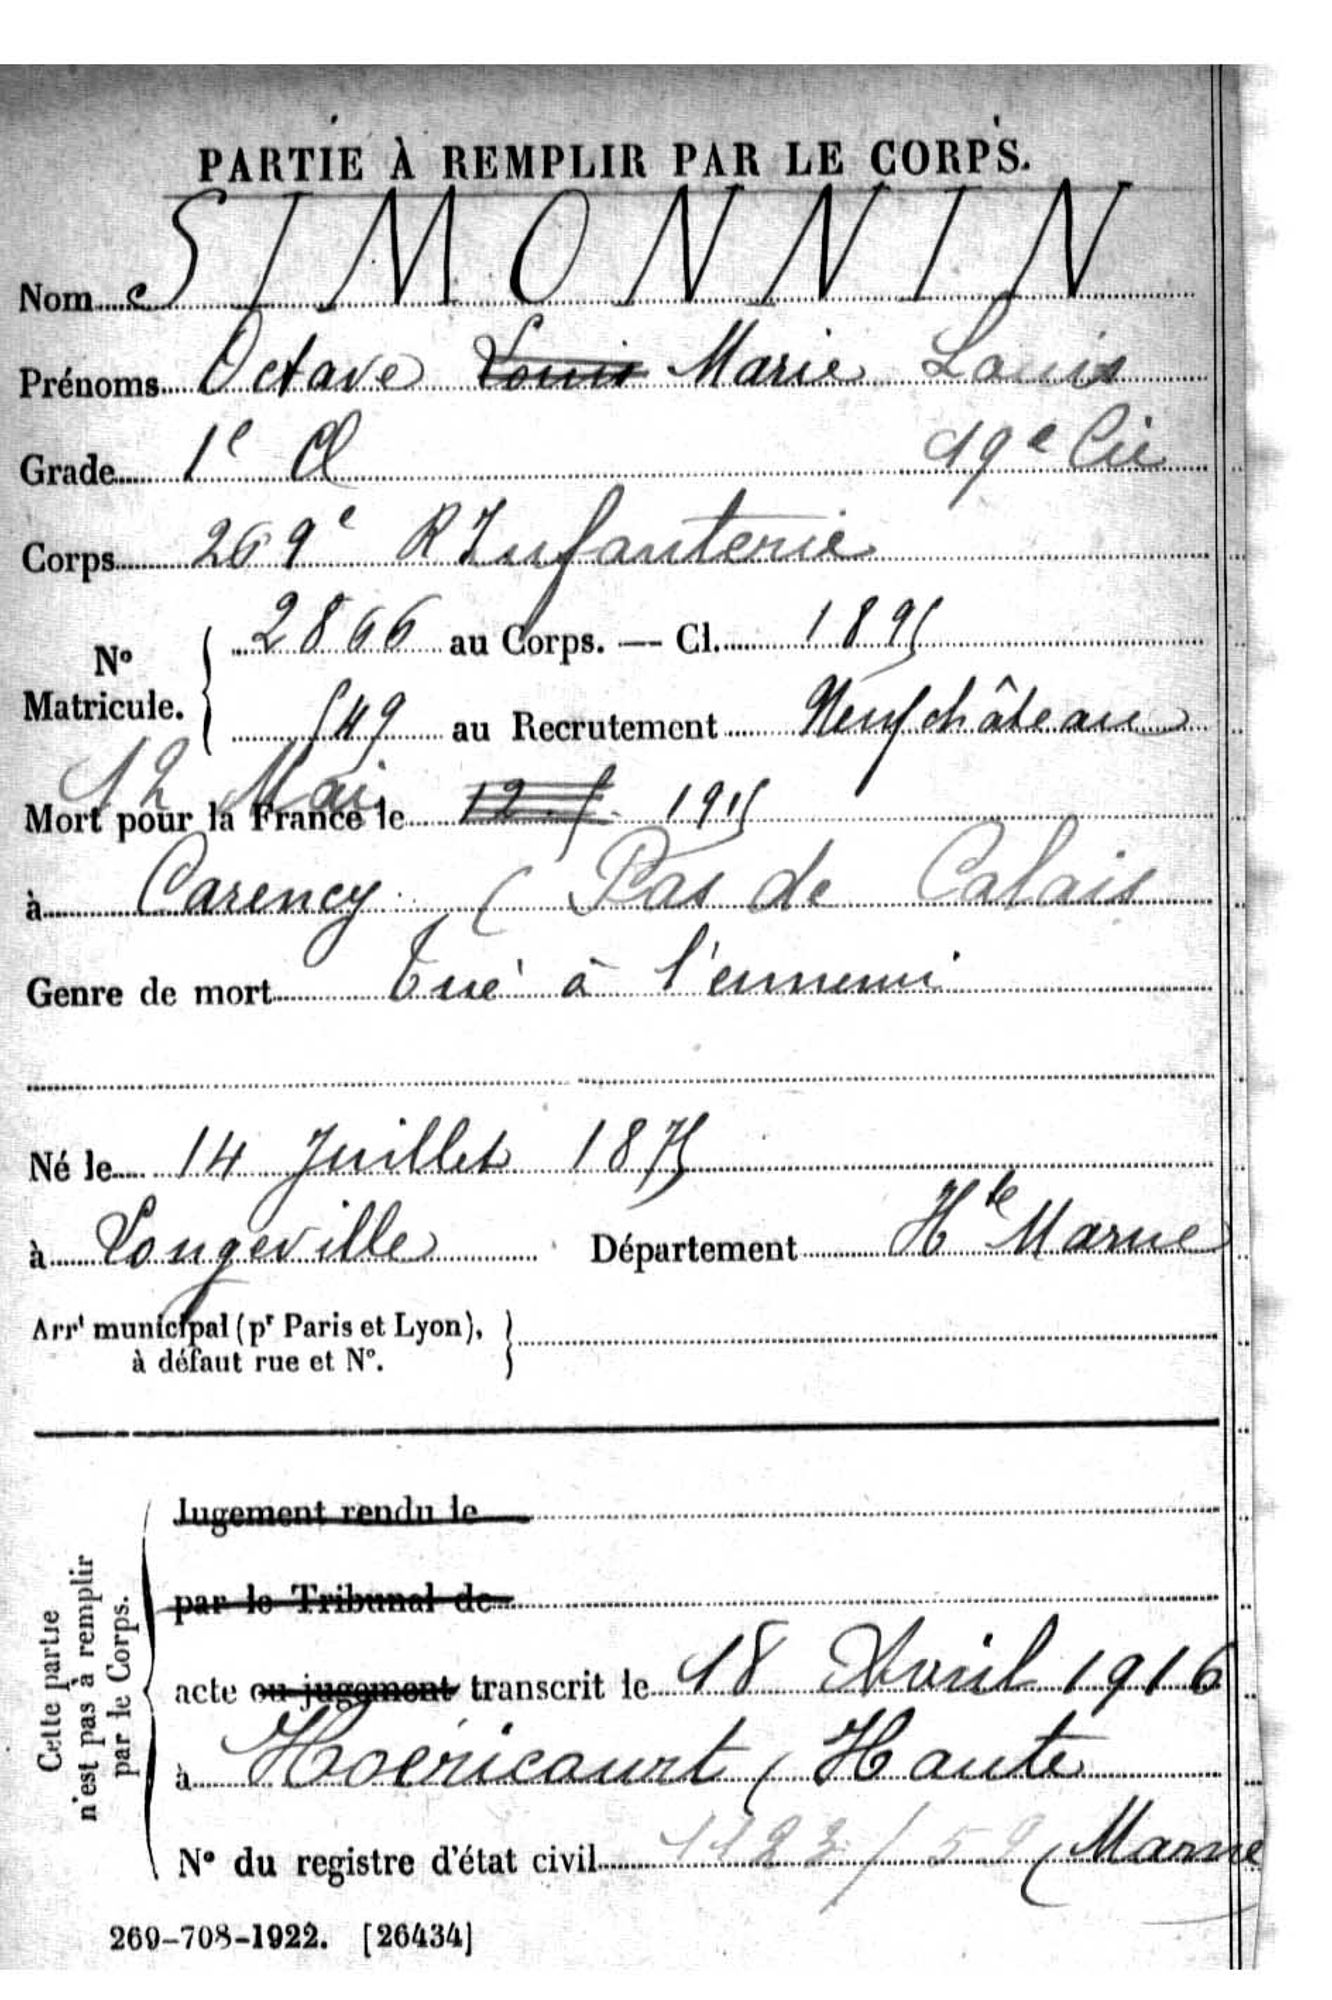 PARTIE À REMPLIR PAR LE CORPS.
Nom SIMONNIN
Prénoms Octave Louis Marie Louis
Grade 1e Cl 19e Cie
Corps 269e R Infanterie
No Matricule. { 2866 au Corps. — Cl. 1895
549 au Recrutement Neufchâteau
12 Mai
Mort pour la France le 12.5. 1915
à Carency (Pas de Calais
Genre de mort Tué à l'ennemi
Né le 14 Juillet 1875
à Longeville Département Hte Marne
Arrt municipal (pr Paris et Lyon), }
à défaut rue et No.
Cette partie
n'est pas à remplir
par le Corps.
Jugement rendu le
par le Tribunal de
acte ou jugement transcrit le 18 Avril 1916
à Hoëricourt (Haute
No du registre d'état civil 1123/59 (Marne
269-708-1922. [26434]